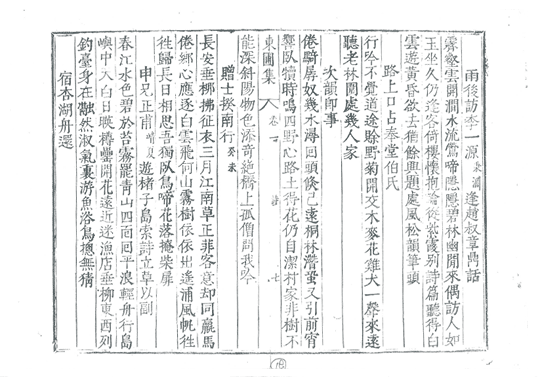 雨後訪李一源秉淵逢趙叔章鼎話
霽壑雲開澗水流鶯啼隱隱碧林幽閒來偶訪人如
玉坐久仍逢客倚樓懷抱論從乾霞別詩篇聽得白
雲遊黃昏欲去猶餘興題處風松韻筆頭
路上口占奉堂伯氏
行吟不覺道途賖野菊開交木麥花雞犬一聲來遠
聽老林開處幾人家
次韻即事
倦騎孱奴幾水潯回頭倏已遠桐林潛螢又引前宵
響臥犢時鳴四野心路土得花仍自潔村家非樹不
東圃集 卷一 詩 七
能深斜陽物色添奇絶橋上孤僧問我吟
贈士揆南行癸未
長安垂柳拂征衣三月江南草正菲客意却同羸馬
倦鄉心應逐白雲飛何山霧樹依依出遙浦風帆往
往歸長日相思吾獨臥鳥啼花落掩柴扉
申兄正甫靖夏遊楮子島索詩立草以副
春江水色碧於苔霧罷青山四面回平浪輕舟行島
嶼中人白日晚樽罍開花遠近迷漁店垂柳東西列
釣臺身在融然淑氣裏游魚浴鳥摠無猜
宿杏湖舟還